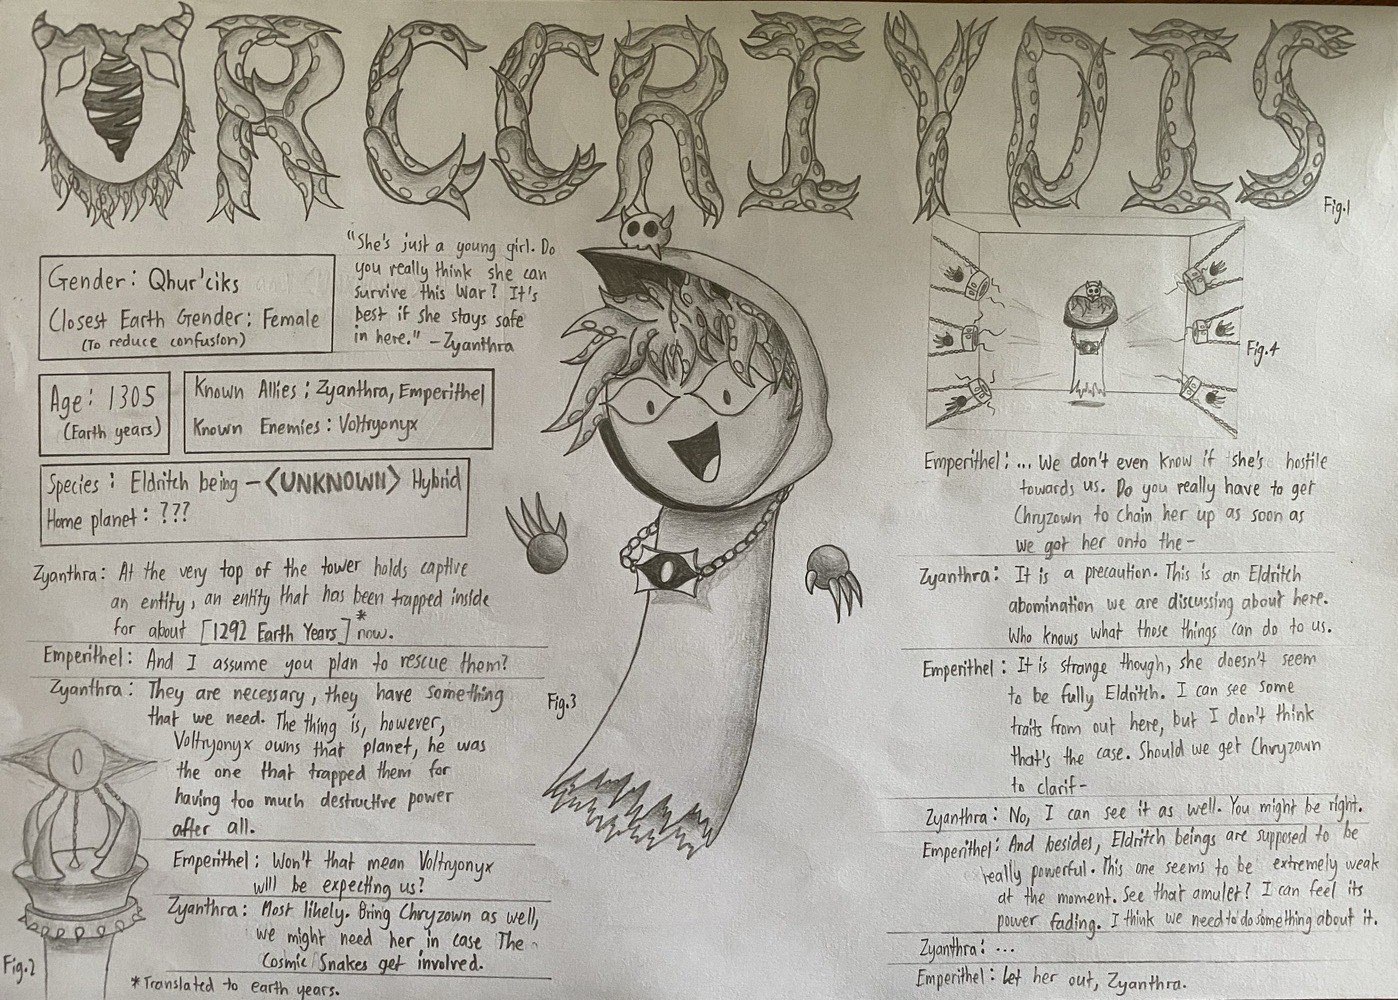 URCCRIYDIS
Fig.1
Gender: Qhur'ciks
Closest Earth Gender: Female
(To reduce confusion)
"She's just a young girl. Do
you really think she can
survive this War? It's
best if she stays safe
in here." -Zyanthra
Age: 1305
(Earth years)
Known Allies: Zyanthra, Emperithel
Known Enemies: Voltryonyx
Species: Eldritch being -<UNKNOWN> Hybrid
Home planet: ???
Zyanthra: At the very top of the tower holds captive
an entity, an entity that has been trapped inside
for about [1292 Earth Years]* now.
Emperithel: And I assume you plan to rescue them?
Zyanthra: They are necessary, they have something
that we need. The thing is, however,
Voltryonyx owns that planet, he was
the one that trapped them for
having too much destructive power
after all.
Emperithel: Won't that mean Voltryonyx
will be expecting us?
Zyanthra: Most likely. Bring Chryzown as well,
we might need her in case The
Cosmic Snakes get involved.
*Translated to earth years.
Fig.2
Fig.3
Fig.4
Emperithel: ... We don't even know if she's hostile
towards us. Do you really have to get
Chryzown to chain her up as soon as
we got her onto the-
Zyanthra: It is a precaution. This is an Eldritch
abomination we are discussing about here.
Who knows what those things can do to us.
Emperithel: It is strange though, she doesn't seem
to be fully Eldritch. I can see some
traits from out here, but I don't think
that's the case. Should we get Chryzown
to clarif-
Zyanthra: No, I can see it as well. You might be right.
Emperithel: And besides, Eldritch beings are supposed to be
really powerful. This one seems to be extremely weak
at the moment. See that amulet? I can feel its
power fading. I think we need to do something about it.
Zyanthra: ...
Emperithel: Let her out, Zyanthra.